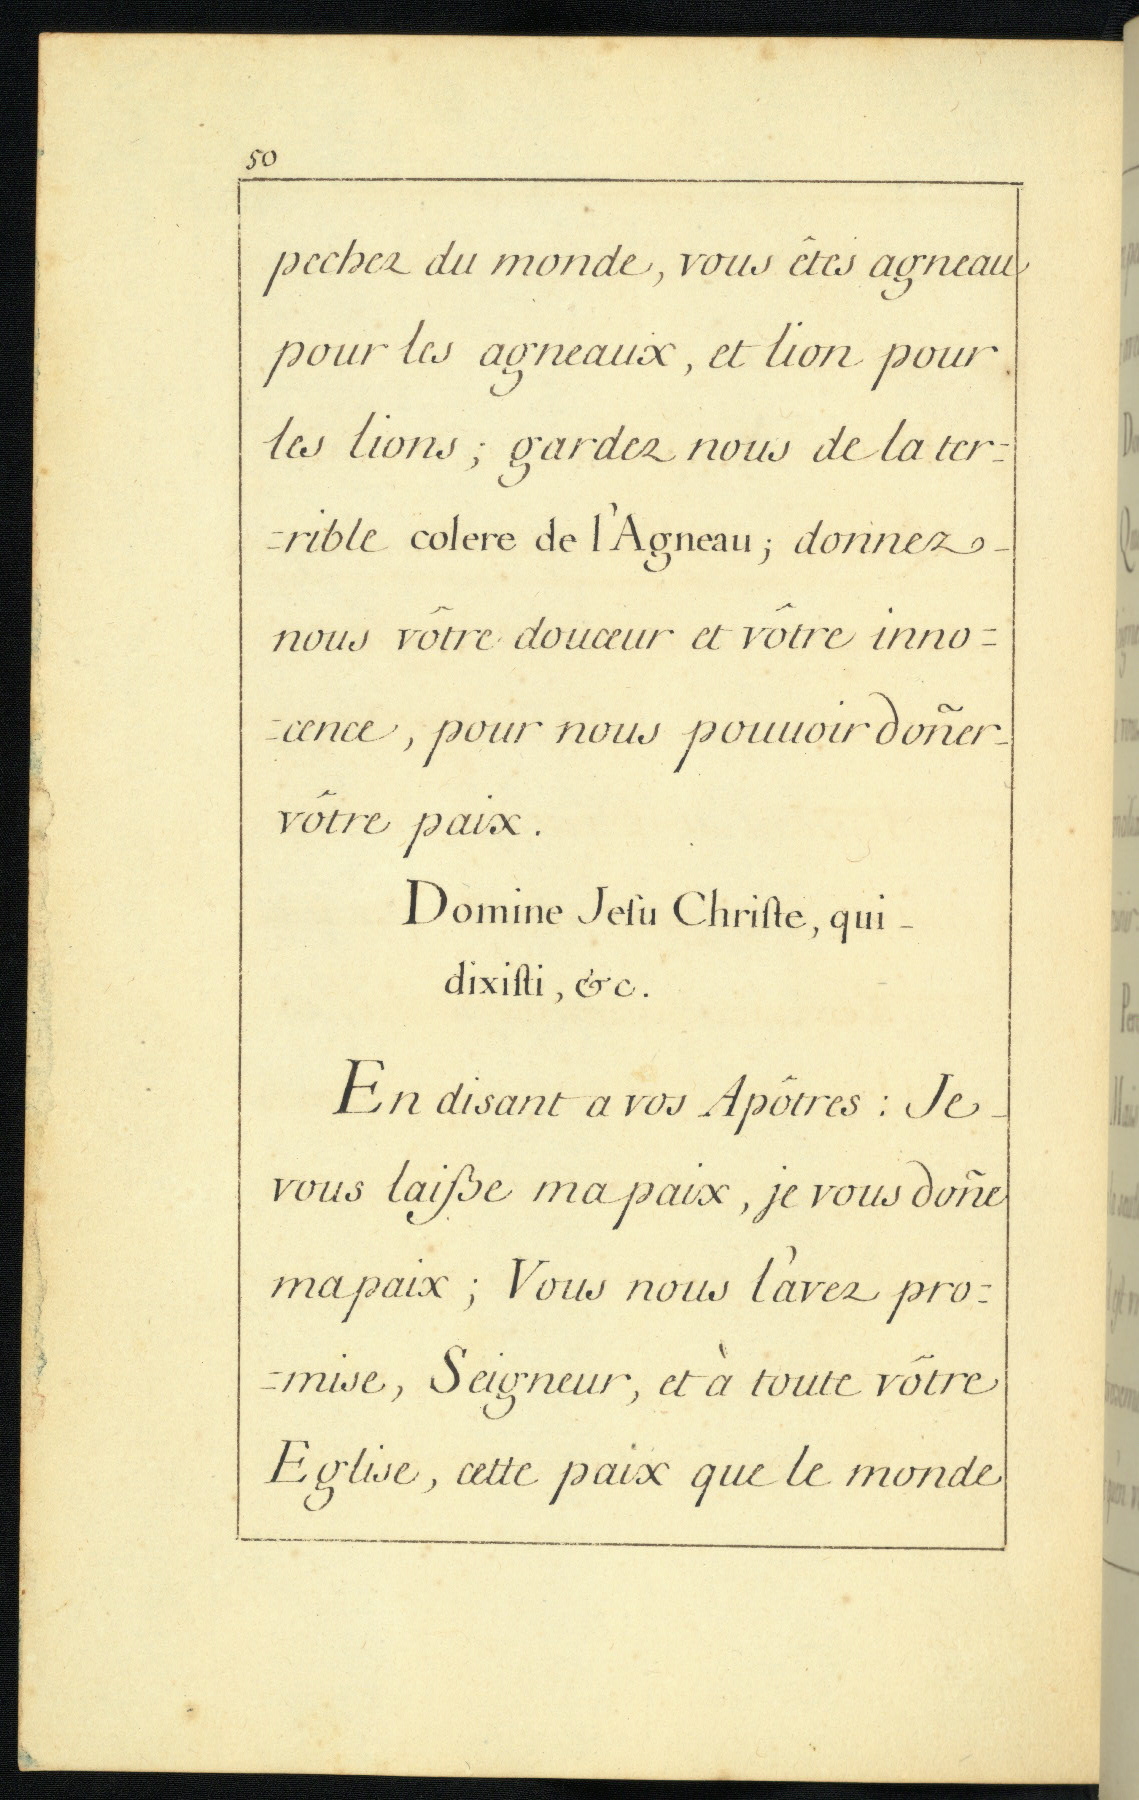 50
pechez du monde, vous êtes agneau
pour les agneaux, et lion pour
les lions; gardez nous de la ter=
=rible colere de l'Agneau; donnez-
nous vôtre douceur et vôtre inno=
=cence, pour nous pouuoir doñer
vôtre paix.
Domine Jeſu Chriſte, qui
dixiſti, &c.
En disant a vos Apôtres: Je
vous laiſse ma paix, je vous doñe
ma paix; Vous nous l'avez pro=
=mise, Seigneur, et à toute vôtre
Eglise, cette paix que le monde